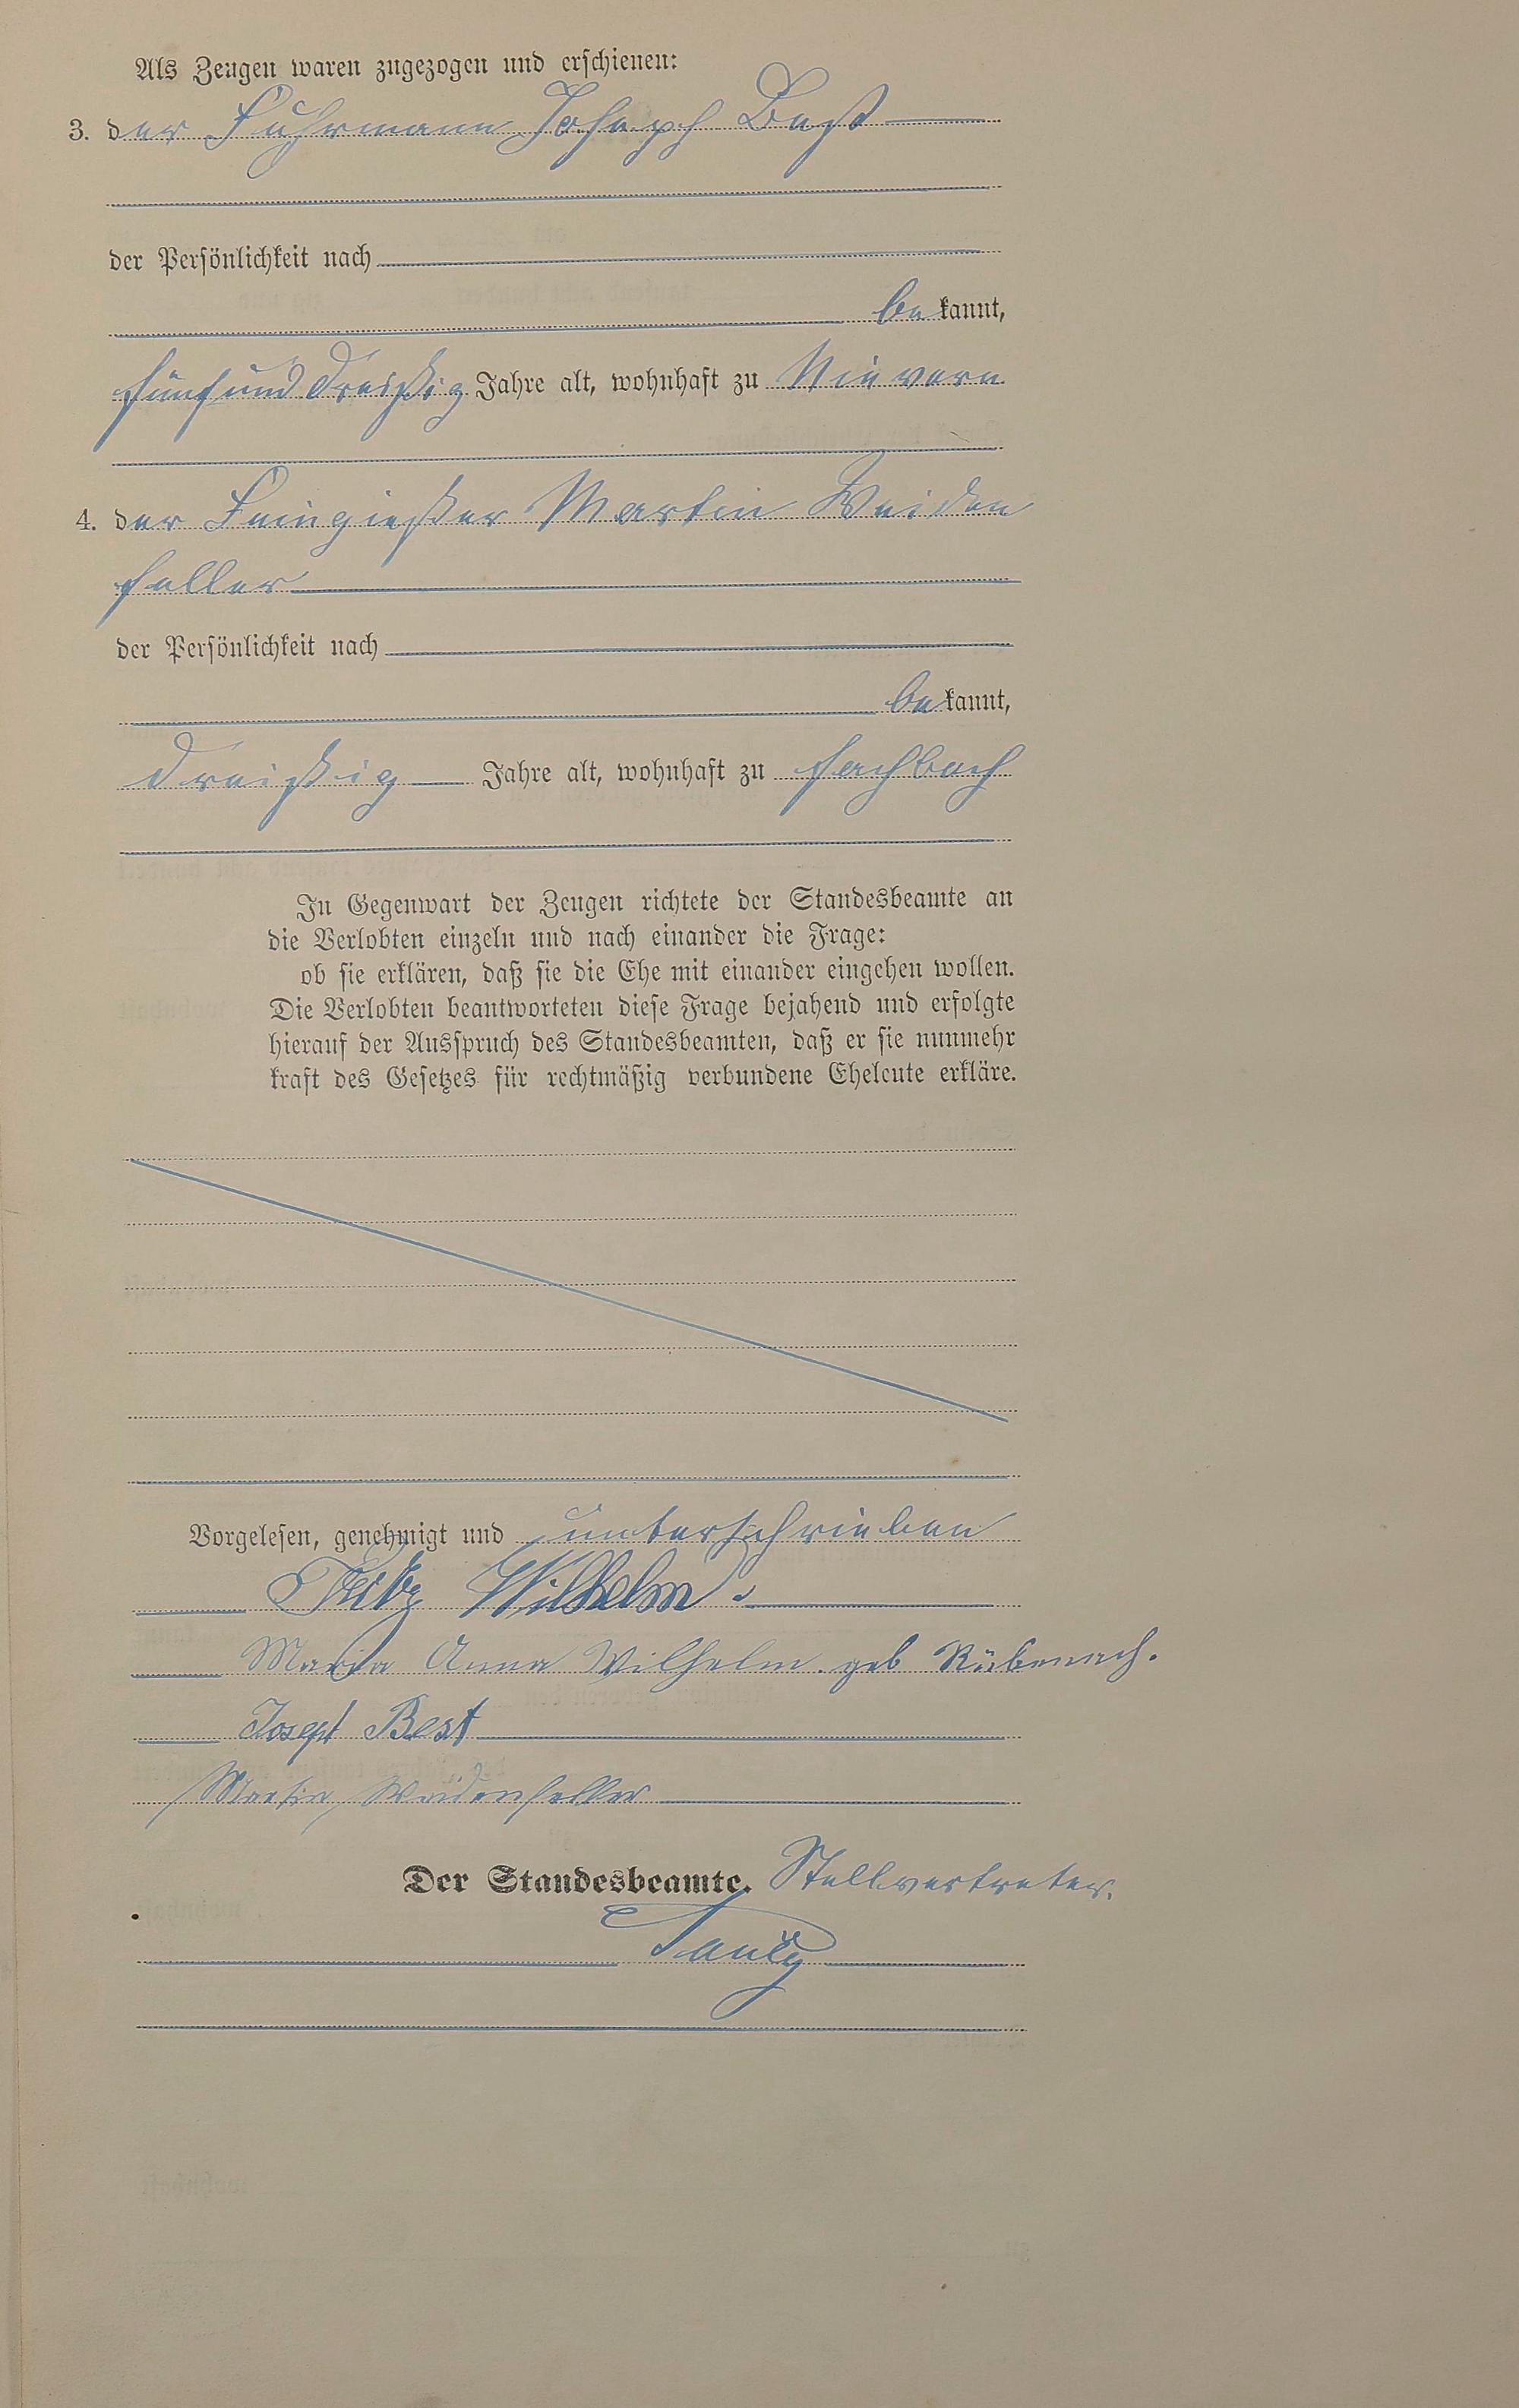 Als Zeugen waren zugezogen und erschienen:
3. der Fuhrmann Joseph Best
der Persönlichkeit nach
bekannt,
fünfunddreißig Jahre alt, wohnhaft zu Nievern
4. der Feingießer Martin Weiden
feller
der Persönlichkeit nach
bekannt,
dreißig Jahre alt, wohnhaft zu Fachbach
In Gegenwart der Zeugen richtete der Standesbeamte an
die Verlobten einzeln und nach einander die Frage:
ob sie erklären, daß sie die Ehe mit einander eingehen wollen.
Die Verlobten beantworteten diese Frage bejahend und erfolgte
hierauf der Ausspruch des Standesbeamten, daß er sie nunmehr
kraft des Gesetzes für rechtmäßig verbundene Eheleute erkläre.
Vorgelesen, genehmigt und unterschrieben
Fritz Wilhelm.
Maria Anna Wilhelm. geb Rübenach.
Joseph Best
Martin Weidenfeller
Der Standesbeamte. Stellvertreter.
Pauly